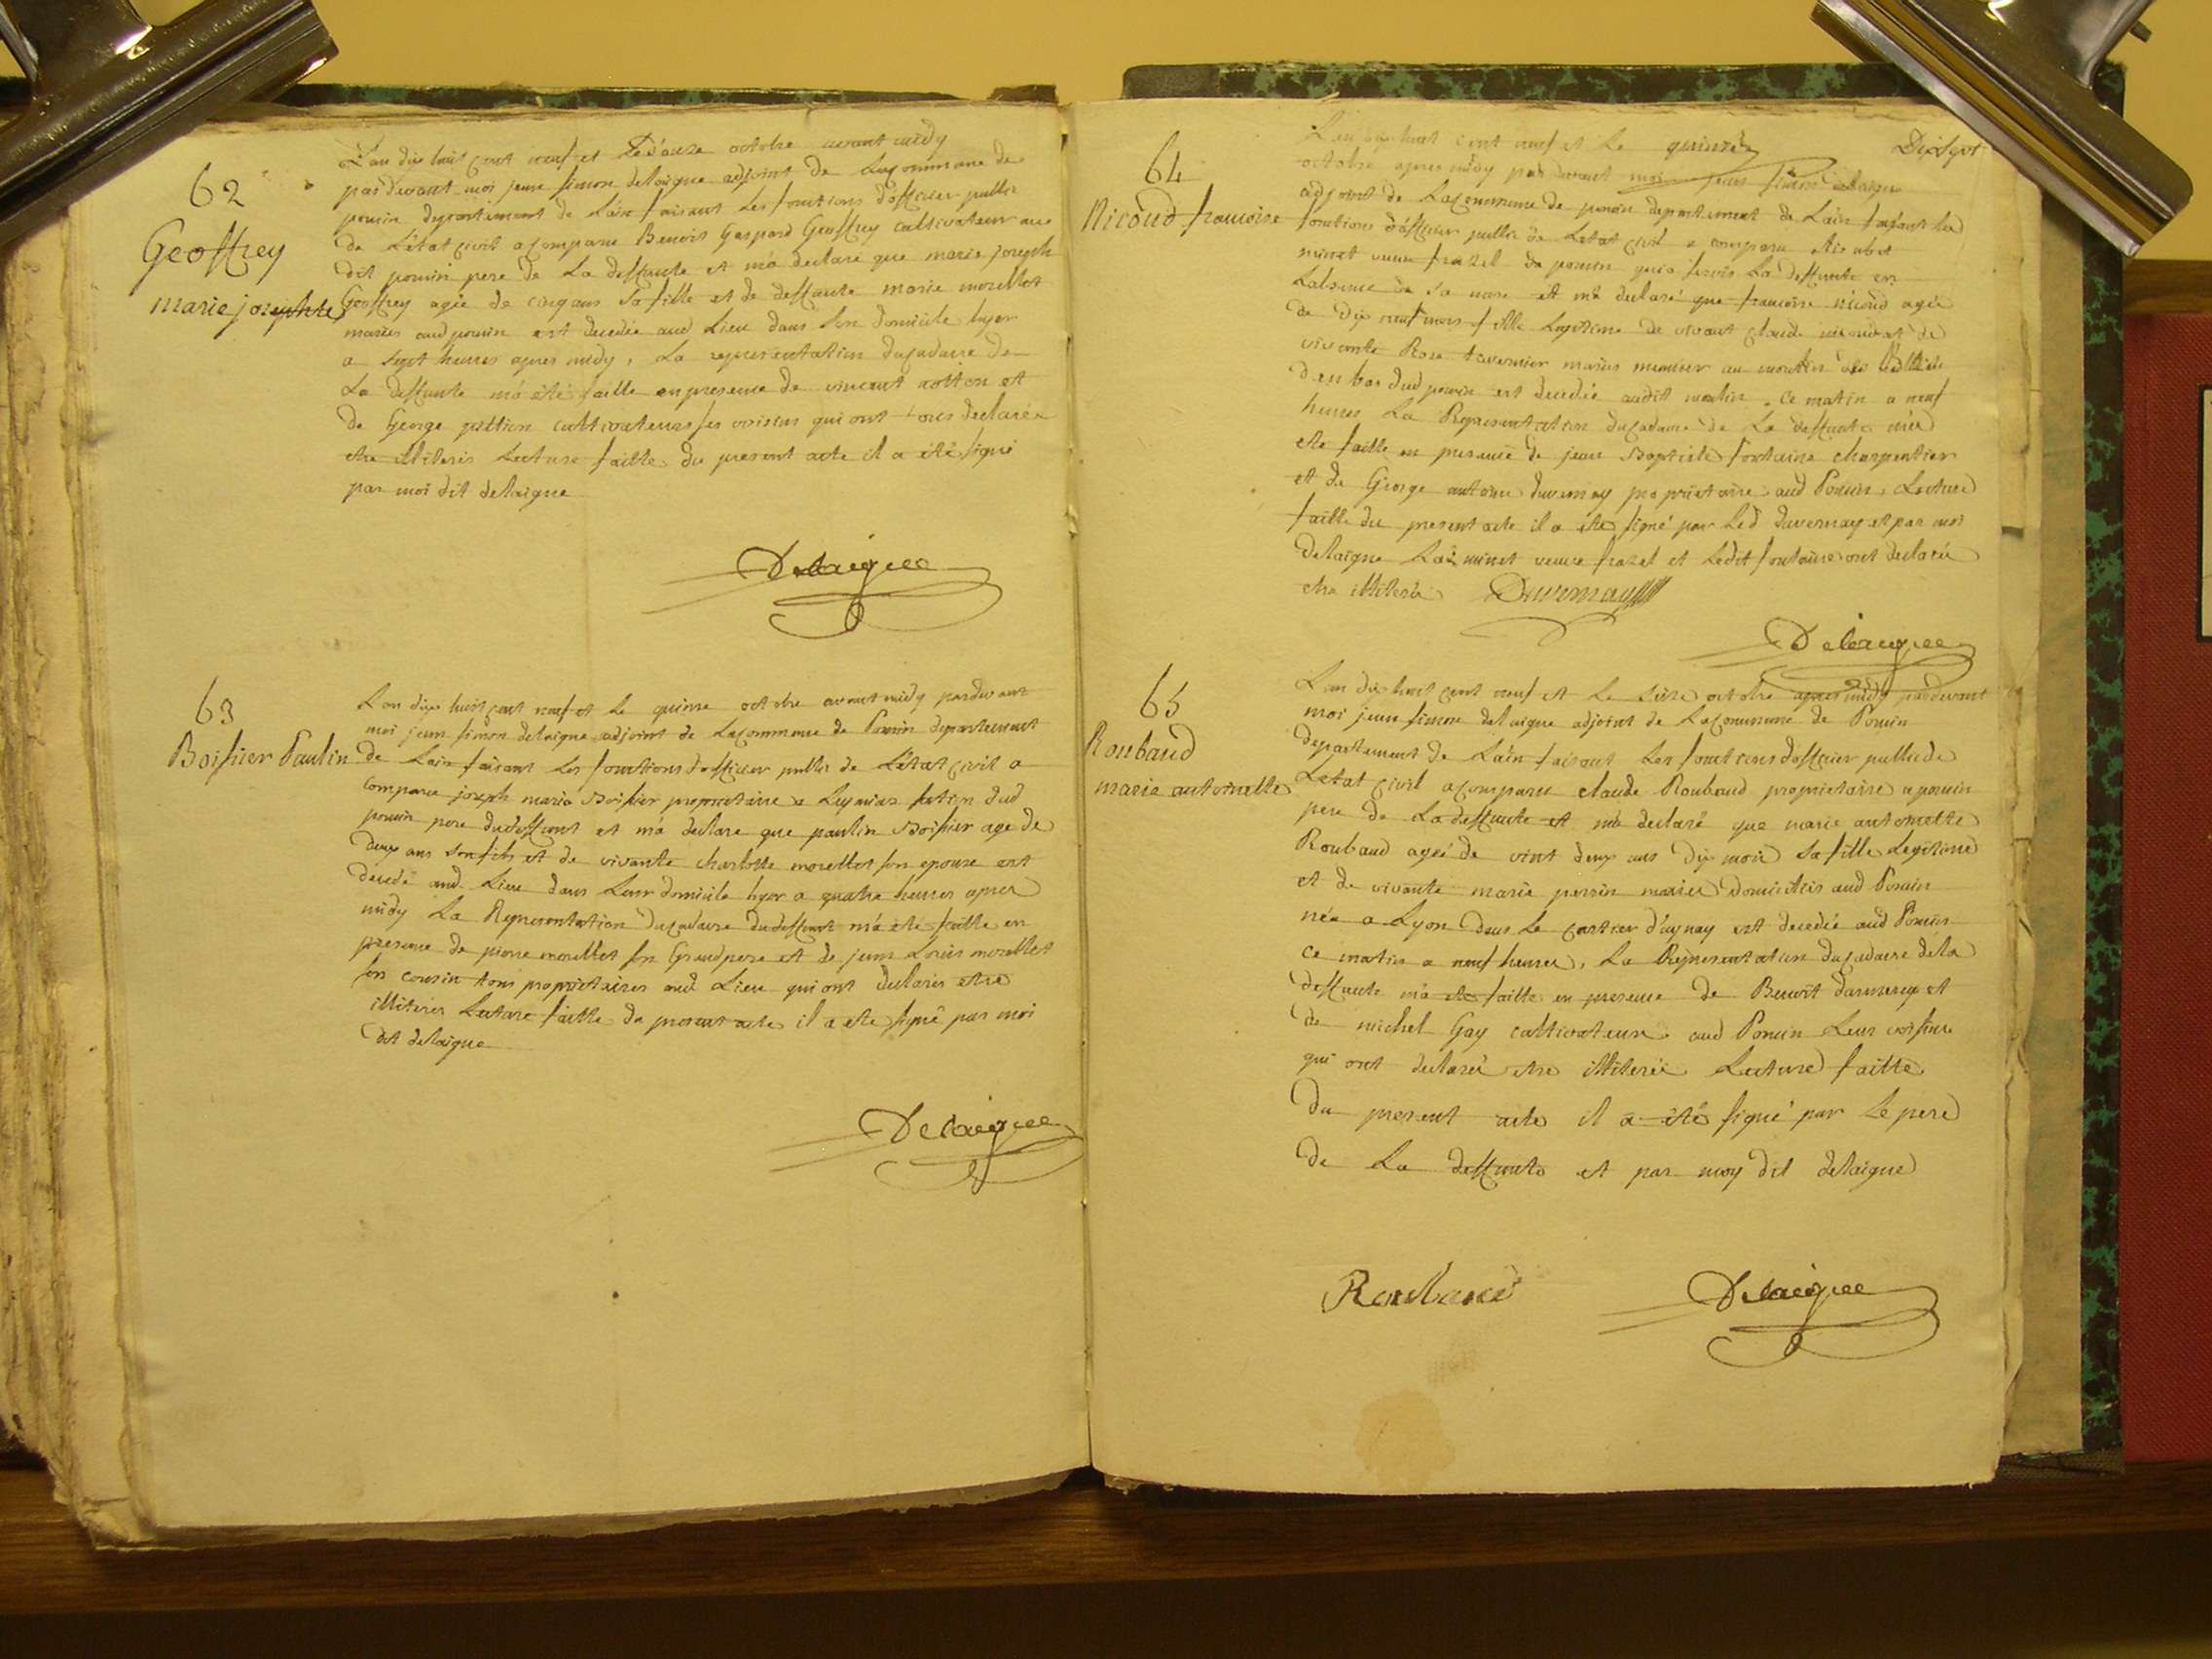 62
Geoffrey
marie josephte
L'an dix huit cent neuf et le douze octobre avant midy
pardevant moi jean simon delaigue adjoint de la commune de
poncin departement de Lain faisant les fonctions d'officier public
de L'état civil a comparu Benoit Gaspard Geoffrey cultivateur au
dit poncin pere de La deffunte et m'a declaré que marie joseph
Geoffrey agée de cinq ans sa fille et de deffunte marie morellet
mariés aud poncin est decedée aud Lieu dans son domicile hyer
a sept heures apres midy, La representation du cadavre de
La deffunte m'a été faitte en presence de vincent et
de George cultivateurs ses voisins qui ont tous declarée
etre illiterés Lecture faitte du present acte il a été signé
par moi dit delaigue
Delaigue
63
Boissier Paulin
L'an dix huit cent neuf et le quinze octobre avant midy pardevant
moi jean simon delaigue adjoint de La commune de Poncin departement
de Lain faisant les fonctions d'officier public de L'état civil a
comparu joseph marie Boissier proprietaire a Leymiat section dud
poncin pere du deffunt et m'a declare que paulin Boissier age de
deux ans son fils et de vivante charlotte morellet son epouse est
decedé aud. Lieu dans Leur domicile hyer a quatre heures apres
midy La Representation du cadavre du deffunt m'a été faitte en
presence de pierre morellet son Grand pere et de jean Louis morellet
son cousin tous proprietaires aud Lieu qui ont declarés etre
illiterés Lecture faitte du present acte il a ete signé par moi
dit delaigue
Delaigue
Dixsept
64
Nicoud francoise
L'an dix huit cent neuf et le quinze
octobre apres midy par devant moi jean simon delaigue
adjoint de La commune de poncin departement de Lain faisant les
fonctions d'officier public de Letat civil a comparu
minet veuve frazet de poncin qui a servis La deffunte en
Labsence de sa mere et m'a declaré que francoise nicoud agée
de dix neuf mois fille Legitime de vivant claude nicoud et de
vivante Rose tavernier mariés meunier au moulin
d'en bas dud poncin est decedée audit moulin ce matin a neuf
heures La Representation du cadavre de La deffunte m'a
ete faitte en presence de jean Baptiste fontaine charpentier
et de George antoine duvernay proprietaire aud Poncin, Lecture
faitte du present acte il a été signé par Led duvernay et par moi
delaigue La minet veuve frazet et Ledit fontaine ont declaré
etre illiterés Duvernay
Delaigue
65
Roubaud
marie antoinette
L'an dix huit cent neuf et le seize octobre apres midy pardevant
moi jean simon delaigue adjoint de La commune de Poncin
departement de Lain faisant les fonctions d'officier public de
Letat civil a comparu claude Roubaud proprietaire a poncin
pere de La deffunte et m'a declaré que marie antoinette
Roubaud agée de vint deux ans dix mois sa fille Legitime
et de vivante marie persin mariés domiciliés aud Poncin
née a Lyon dans le cartier d'aynay est decedée aud Poncin
ce matin a neuf heures, La Representation du cadavre de la
deffunte m'a ete faitte en presence de Benoit darmerey et
de michel Gay cultivateurs aud Poncin Leurs voisins
qui ont declaré etre illiterés Lecture faitte
du present acte il a été signé par le pere
de La deffunte et par moy dit delaigue
Roubaud
Delaigue